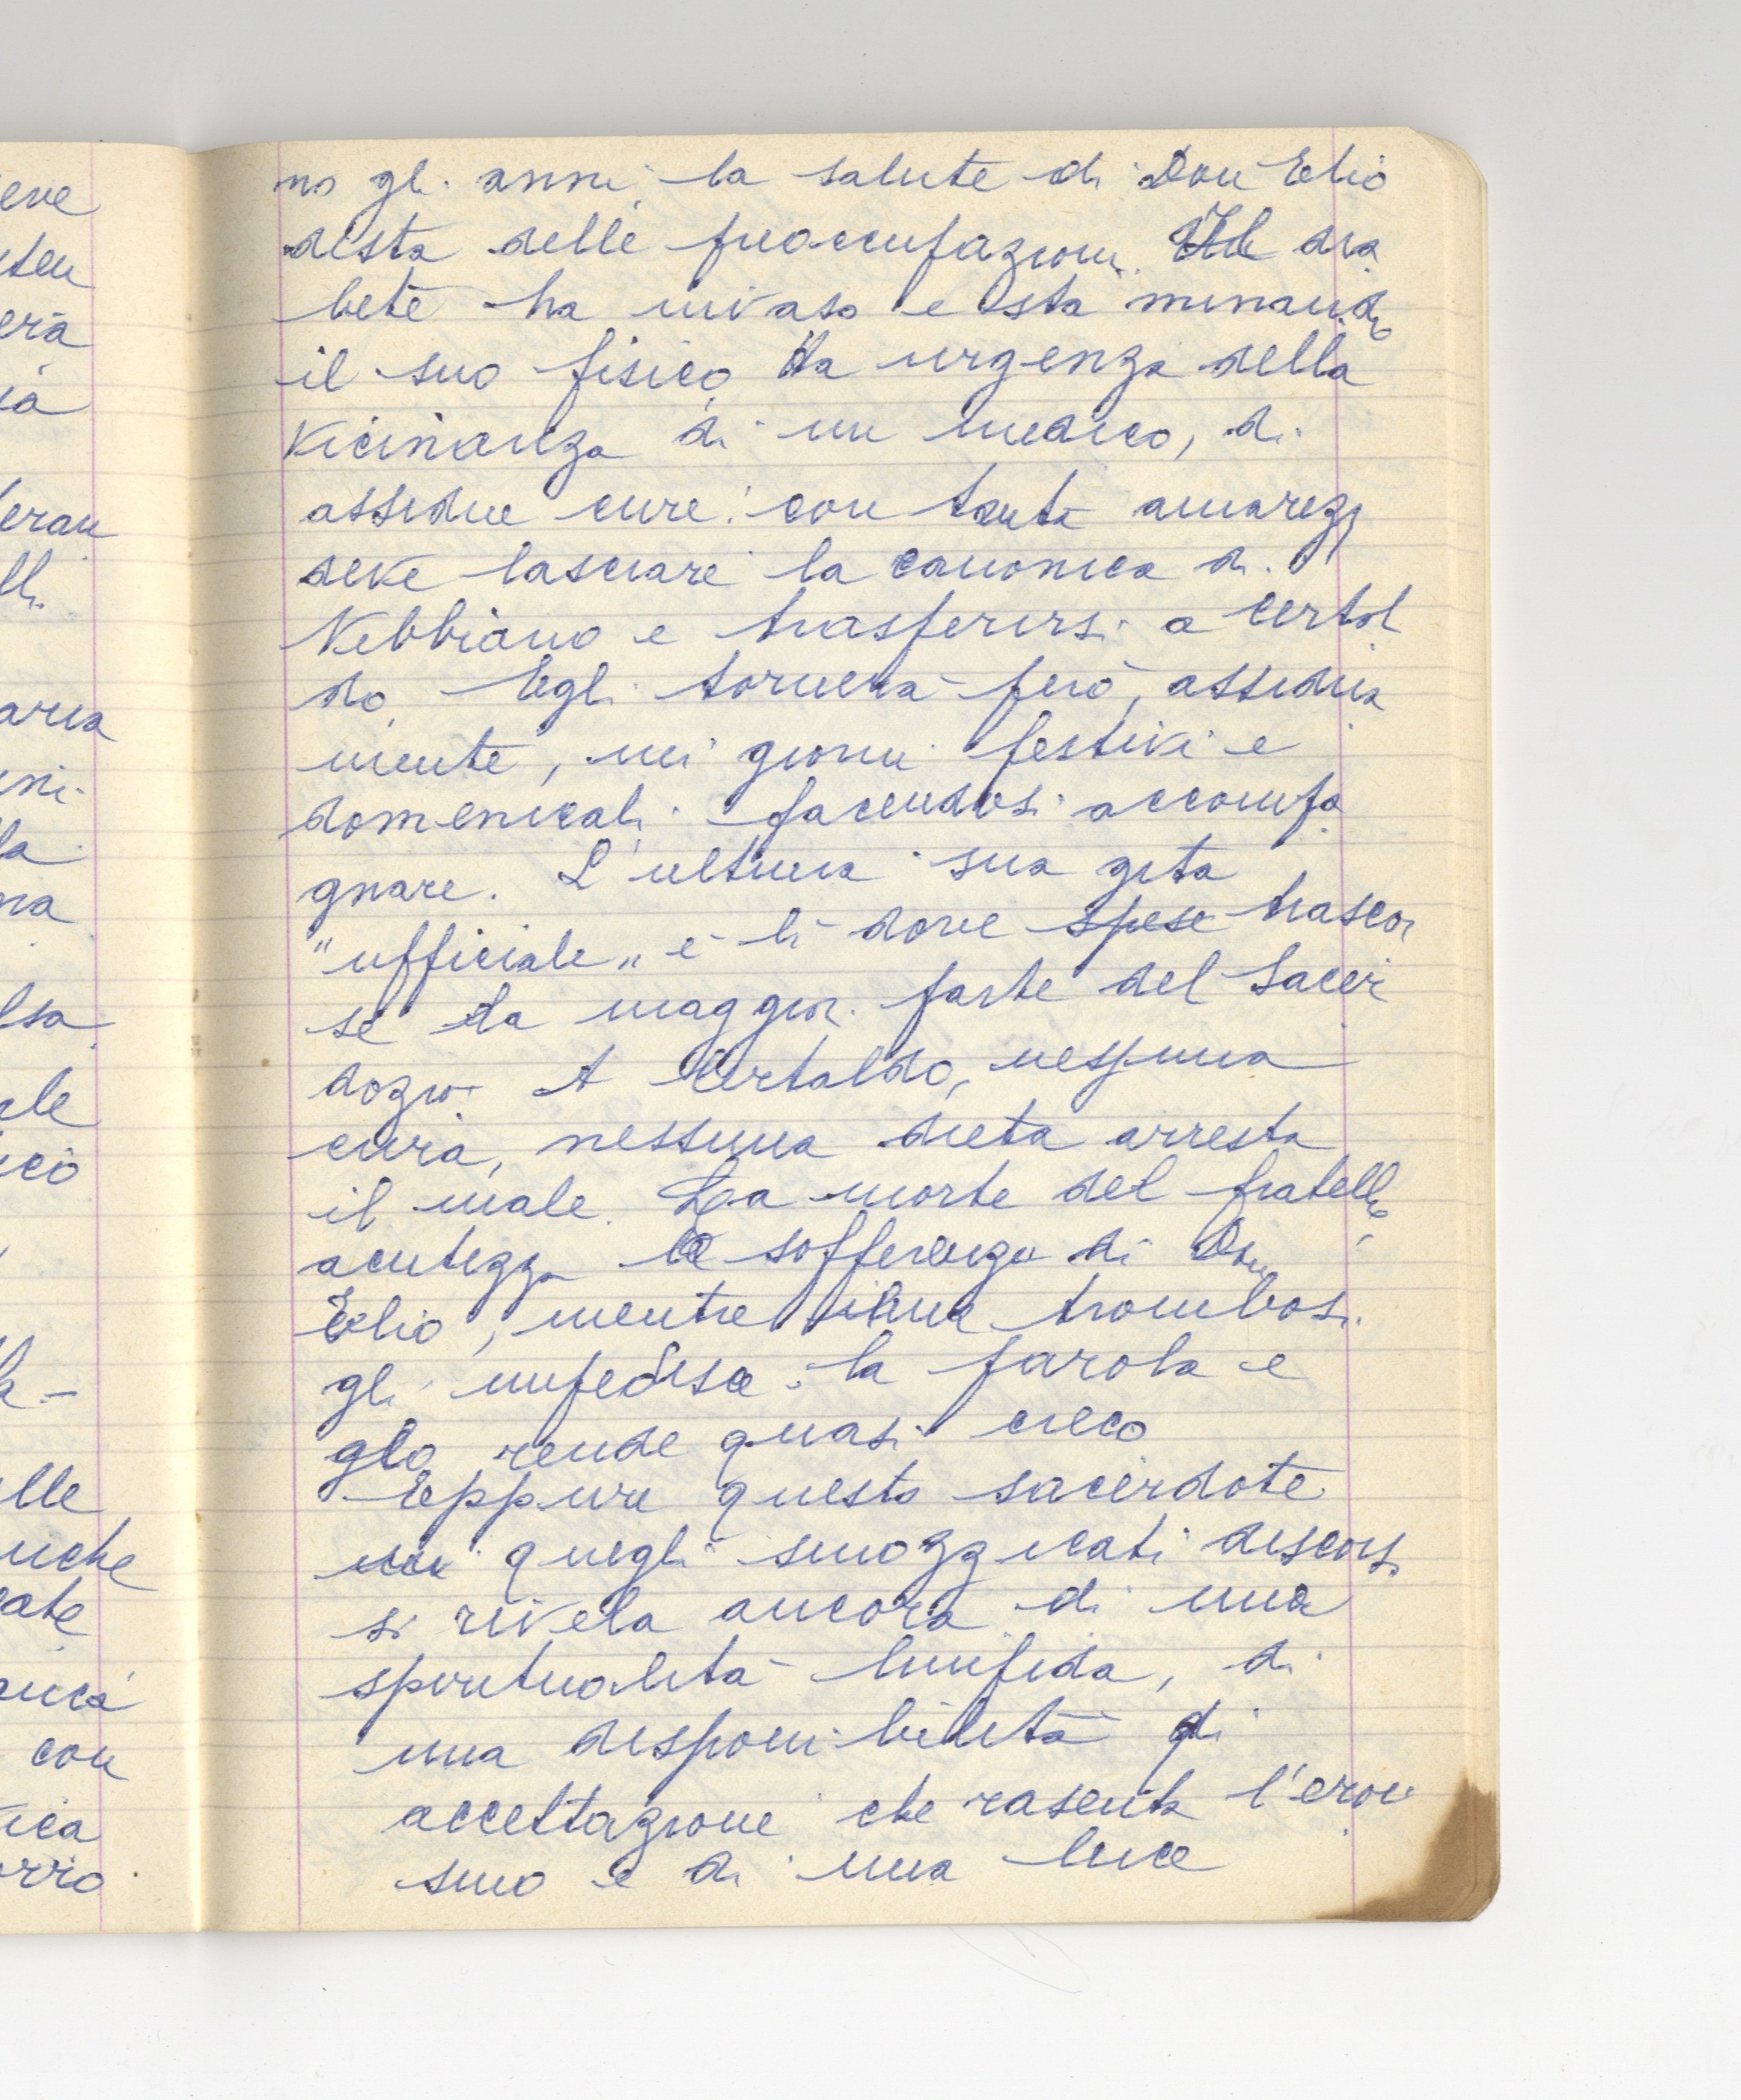 eve
uten
era
ia
eran
lli
aria
ini-
la
na
lsa
ale
ico
a-
elle
uche
cate
anca
con
ica
orro
no gli anni, la salute di Don Elio
desta delle preoccupazioni. Il dia
bete ha invaso e sta minando
il suo fisico, ha urgenza della
vicinanza di un medico, di
assidue cure: con tanta amarezza
deve lasciare la canonica di
Nebbiano e trasferirsi a Certal
do. Egli tornerà però, assidua
mente, nei giorni festivi e
domenicali facendosi accompa
gnare. L'ultima sua gita
"ufficiale„ è lì dove spese trascor
se la maggior parte del Sacer
dozio. A Certaldo, nessuna
cura, nessuna dieta arresta
il male. La morte del fratello
acutizza la sofferenza di Don
Elio, mentre una trombosi
gli impedisce la parola e
glo rende quasi cieco
Eppure questo sacerdote
in quegli smozzicati discorsi
si rivela ancora di una
spiritualità limpida, di
una disponibilità di
accettazione che rasenta l'eroi
smo e di una luce